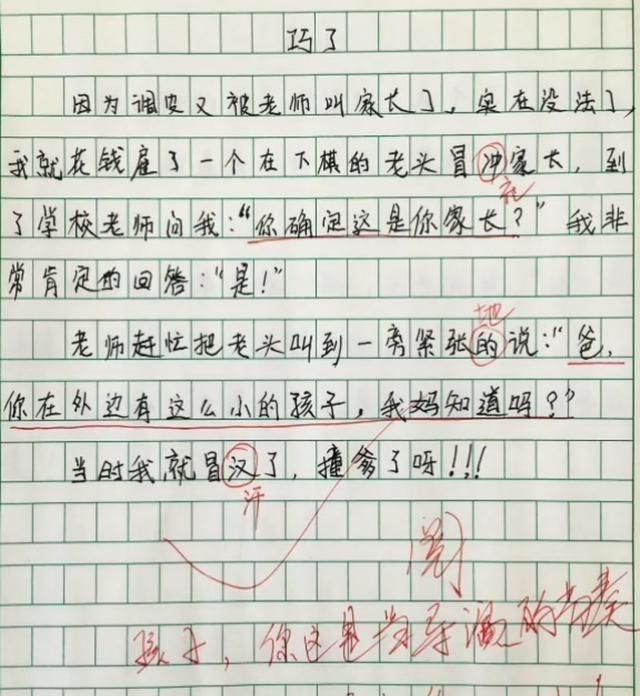 巧了
因为调皮又被老师叫家长了，实在没法了，
我就花钱雇了一个在下棋的老头冒冲家长，到
充
了学校老师问我："你确定这是你家长？"我非
常肯定的回答："是！"
地
老师赶忙把老头叫到一旁紧张的说："爸，
你在外边有这么小的孩子，我妈知道吗？"
当时我就冒汉了，撞爹了呀！！！
汗
阅
孩子，你这是当导演的节奏